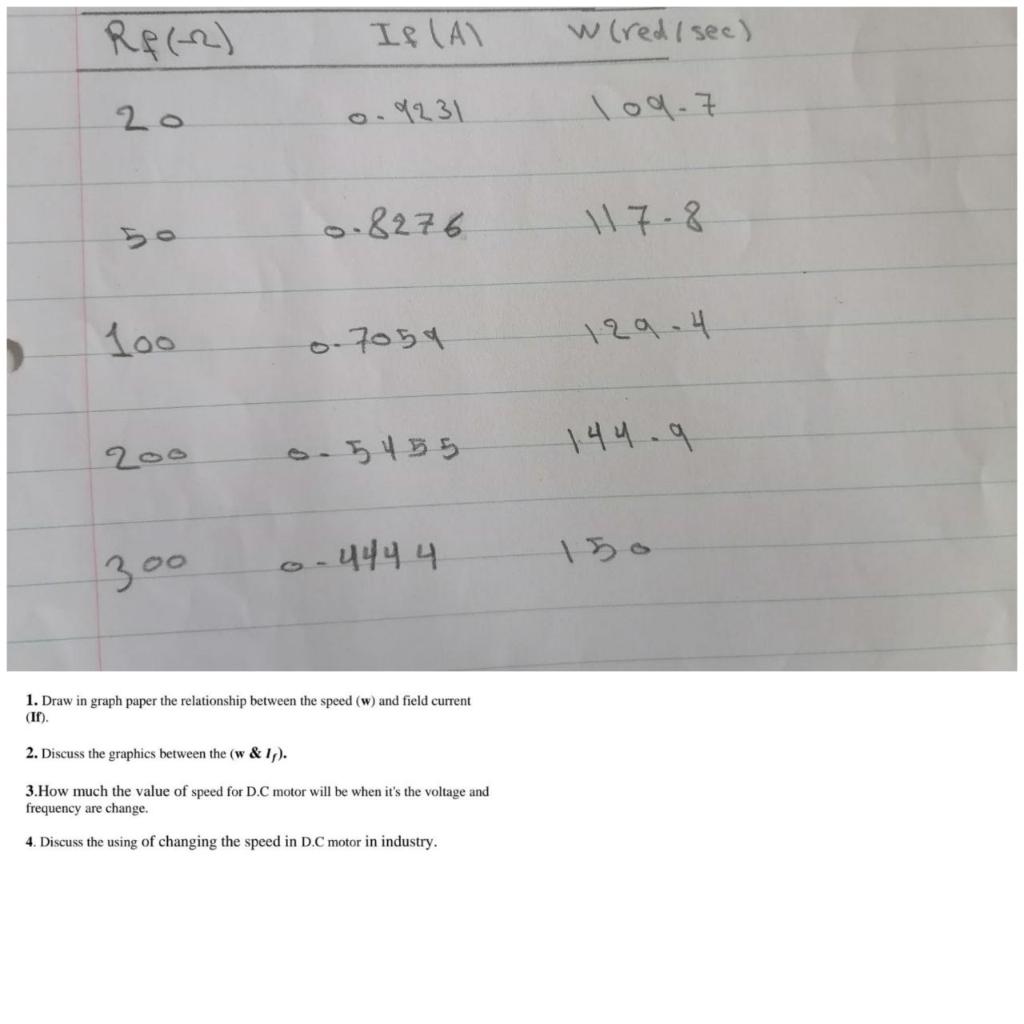 Rf(Ω) If(A) w(red/sec)
20 0.9231 109.7
50 0.8276 117.8
100 0.7059 129.4
200 0.5455 144.9
300 0.4444 150
1. Draw in graph paper the relationship between the speed (w) and field current
(If).
2. Discuss the graphics between the (w & If).
3.How much the value of speed for D.C motor will be when it's the voltage and
frequency are change.
4. Discuss the using of changing the speed in D.C motor in industry.